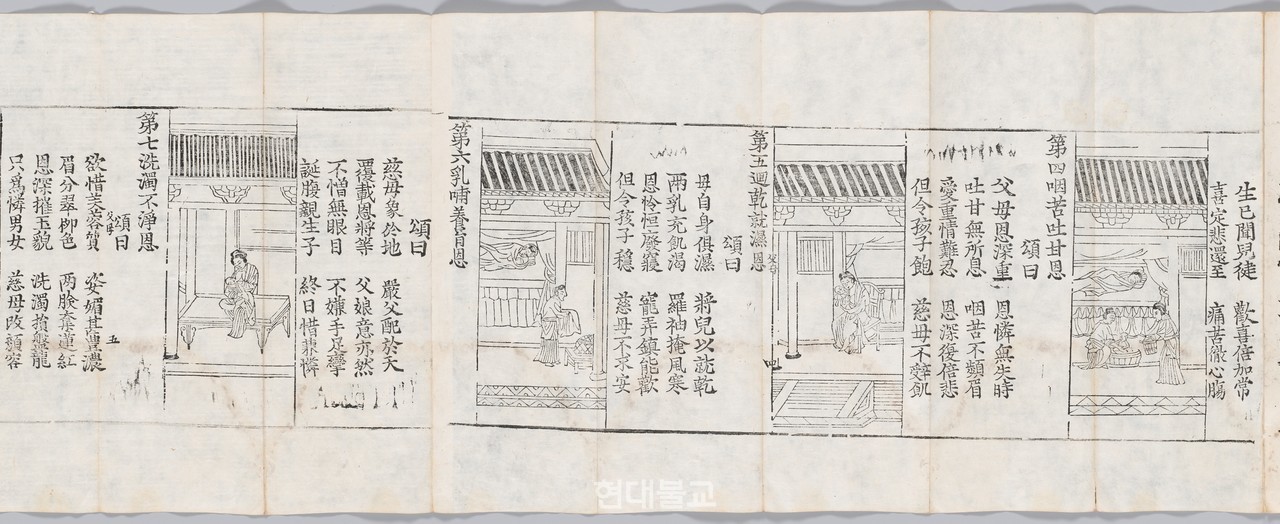 生已聞兒徒 歡喜倍加常
喜定悲還至 痛苦徹心膓
第四咽苦吐甘恩
頌曰
父母恩深重 恩憐無失時
吐甘無所息 咽苦不顰眉
愛重情難忍 恩深復倍悲
但令孩子飽 慈母不辝飢
第五迴乾就濕恩
父母
四
頌曰
母自身俱濕 將兒以就乾
兩乳充飢渴 羅袖掩風寒
恩怜恒廢寢 寵弄鎮能歡
但令孩子穩 慈母不求安
第六乳哺養育恩
頌曰
慈母象於地 嚴父配於天
覆載恩將等 父娘意亦然
不憎無眼目 不嫌手足攣
誕腹親生子 終日惜兼憐
第七洗濁不淨恩
頌曰
父母
五
欲惜芙蓉質 姿媚甚豊濃
眉分翠柳色 两臉奪蓮紅
恩深摧玉貌 洗濁損盤龍
只爲憐男女 慈母改顔容
현대불교